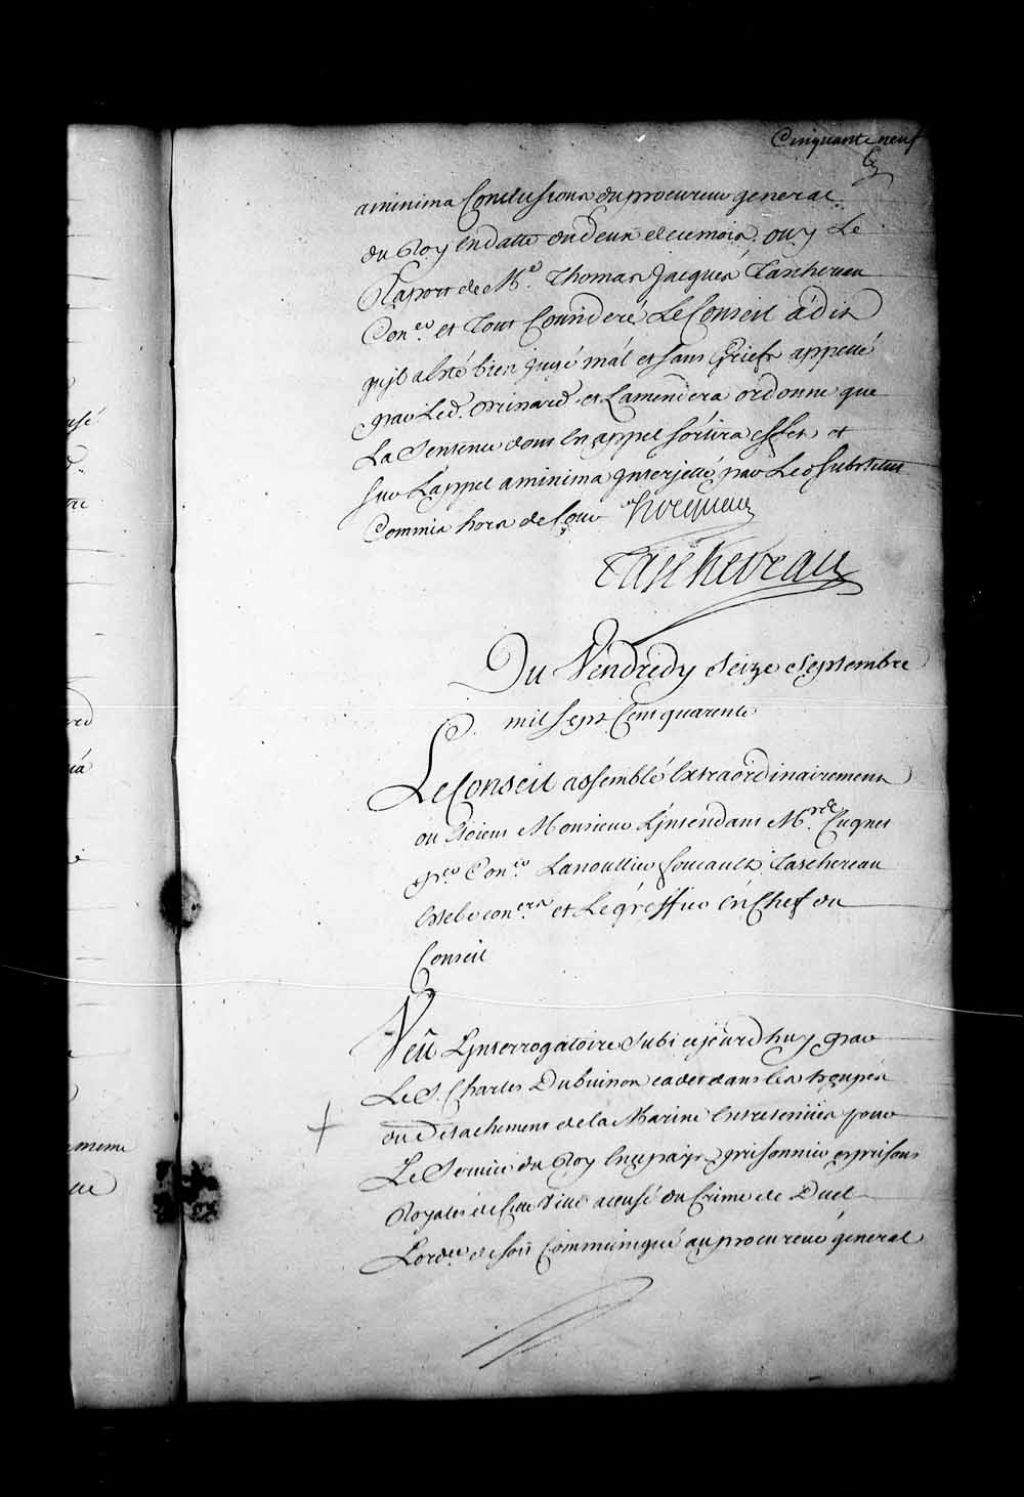 Cinquante neuf
aminima Conclusions du procureur general
du Roy en datte du deux de ce mois. ouy Le
Raport de Me. Thomas Jacques Taschereau
Coner. et Tout Considéré Le Conseil à dit
qu'jl a Esté bien jugé mál et sans Griefs appellé
par Led. et L'amendera ordonne que
La Sentence dont Est appel sortira Effet et
sur L'appel aminima jnterjetté par Led substitut
Commis hors de Cour Hocquart
Taschereau
Du Vendredy Seize Septembre
mil Sept Cent quarente
Le Conseil assemblé Extraordinairement
ou Etoient Monsieur L'jntendant Mrs de Cugnet
per Coner Lanoullier foucault Taschereau
Estebe coners et Le gréffier en Chef du
Conseil
Veu L'jnterrogatoire Subi cejourd'huy par
Le S. Charles Dubuisson cadet dans Les troupes
du Détachement de la Marine Entretenües pour
Le Service du Roy En ce pays prisonnier es prisons
Royales de Cette Ville accusé du Crime de Duel
L'orde. de soit Communiqué au procureur général
usé
tre
ard
même